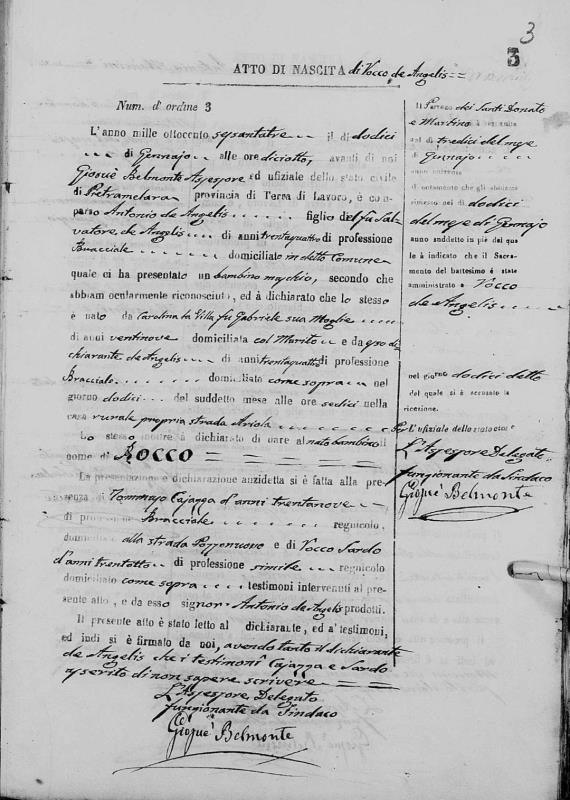 3
3
ATTO DI NASCITA di Rocco de Angelis
Num. d'ordine 3
L'anno mille ottocento sessantatre il dì dodici
di Gennajo alle ore diciotto, avanti di noi
Giosuè Belmonte Assessore ed ufiziale dello stato civile
di Pietramelara provincia di Terra di Lavoro, è com-
parso Antonio de Angelis figlio del fu Sal-
vatore de Angelis di anni trentaquattro di professione
Bracciale domiciliato in detto Comune
quale ci ha presentato un bambino maschio, secondo che
abbiam ocularmente riconosciuto, ed à dichiarato che lo stesso
è nato da Carolina la Villa fu Gabriele sua Moglie
di anni ventinove domiciliata col Marito e da esso di-
chiarante de Angelis di anni trentaquattro di professione
Bracciale domiciliato come sopra nel
giorno dodici del suddetto mese alle ore sedici nella
casa rurale propria strada Ariola
Lo stesso inoltre à dichiarato di dare al nato bambino il
nome di ROCCO
La presentazione e dichiarazione anzidetta si è fatta alla pre-
senza di Tommaso Cajazza d'anni trentanove
di professione Bracciale regnicolo,
domiciliato alla strada Pozzonuovo e di Rocco Sardo
d'anni trentotto di professione simile regnicolo
domiciliato come sopra testimoni intervenuti al pre-
sente atto, e da esso signor Antonio de Angelis prodotti.
Il presente atto è stato letto al dichiarante, ed a' testimoni,
ed indi si è firmato da noi, avendo tanto il dichiarante
de Angelis che i testimoni Cajazza e Sardo
asserito di non sapere scrivere
L'Assessore Delegato
funzionante da Sindaco
Giosuè Belmonte
Il Parroco dei Santi Donato
e Martino
nel dì tredici del mese
di Gennajo
anno corrente
rimesso nel dì dodici
del mese di Gennajo
anno suddetto in piè del qua-
le à indicato che il Sacra-
mento del battesimo è stato
amministrato a Rocco
de Angelis
nel giorno dodici detto
del quale si è accusato la
ricezione.
Per L'ufiziale dello stato civile
L'Assessore Delegato
funzionante da Sindaco
Giosuè Belmonte